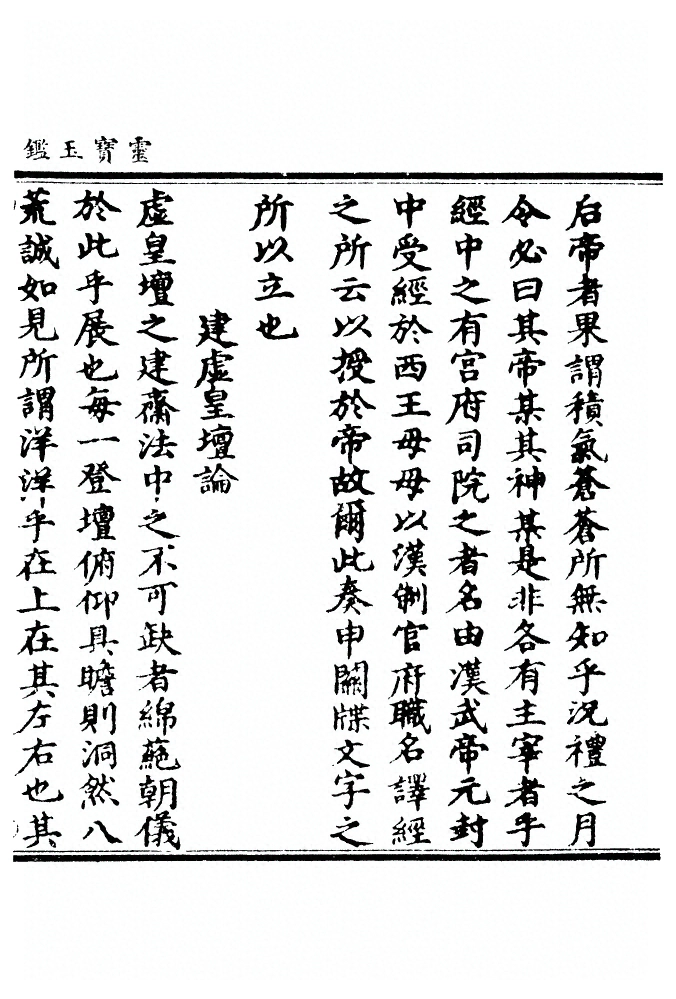 靈寶玉鑑
后帝者果謂積氣蒼蒼所無知乎況禮之月
令必曰其帝某其神某是非各有主宰者乎
經中之有宮府司院之者名由漢武帝元封
中受經於西王母母以漢制官府職名譯經
之所云以授於帝故爾此奏申關牒文字之
所以立也
建虛皇壇論
虛皇壇之建齋法中之不可缺者綿蕝朝儀
於此乎展也每一登壇俯仰具瞻則洞然八
荒誠如見所謂洋洋乎在上在其左右也其